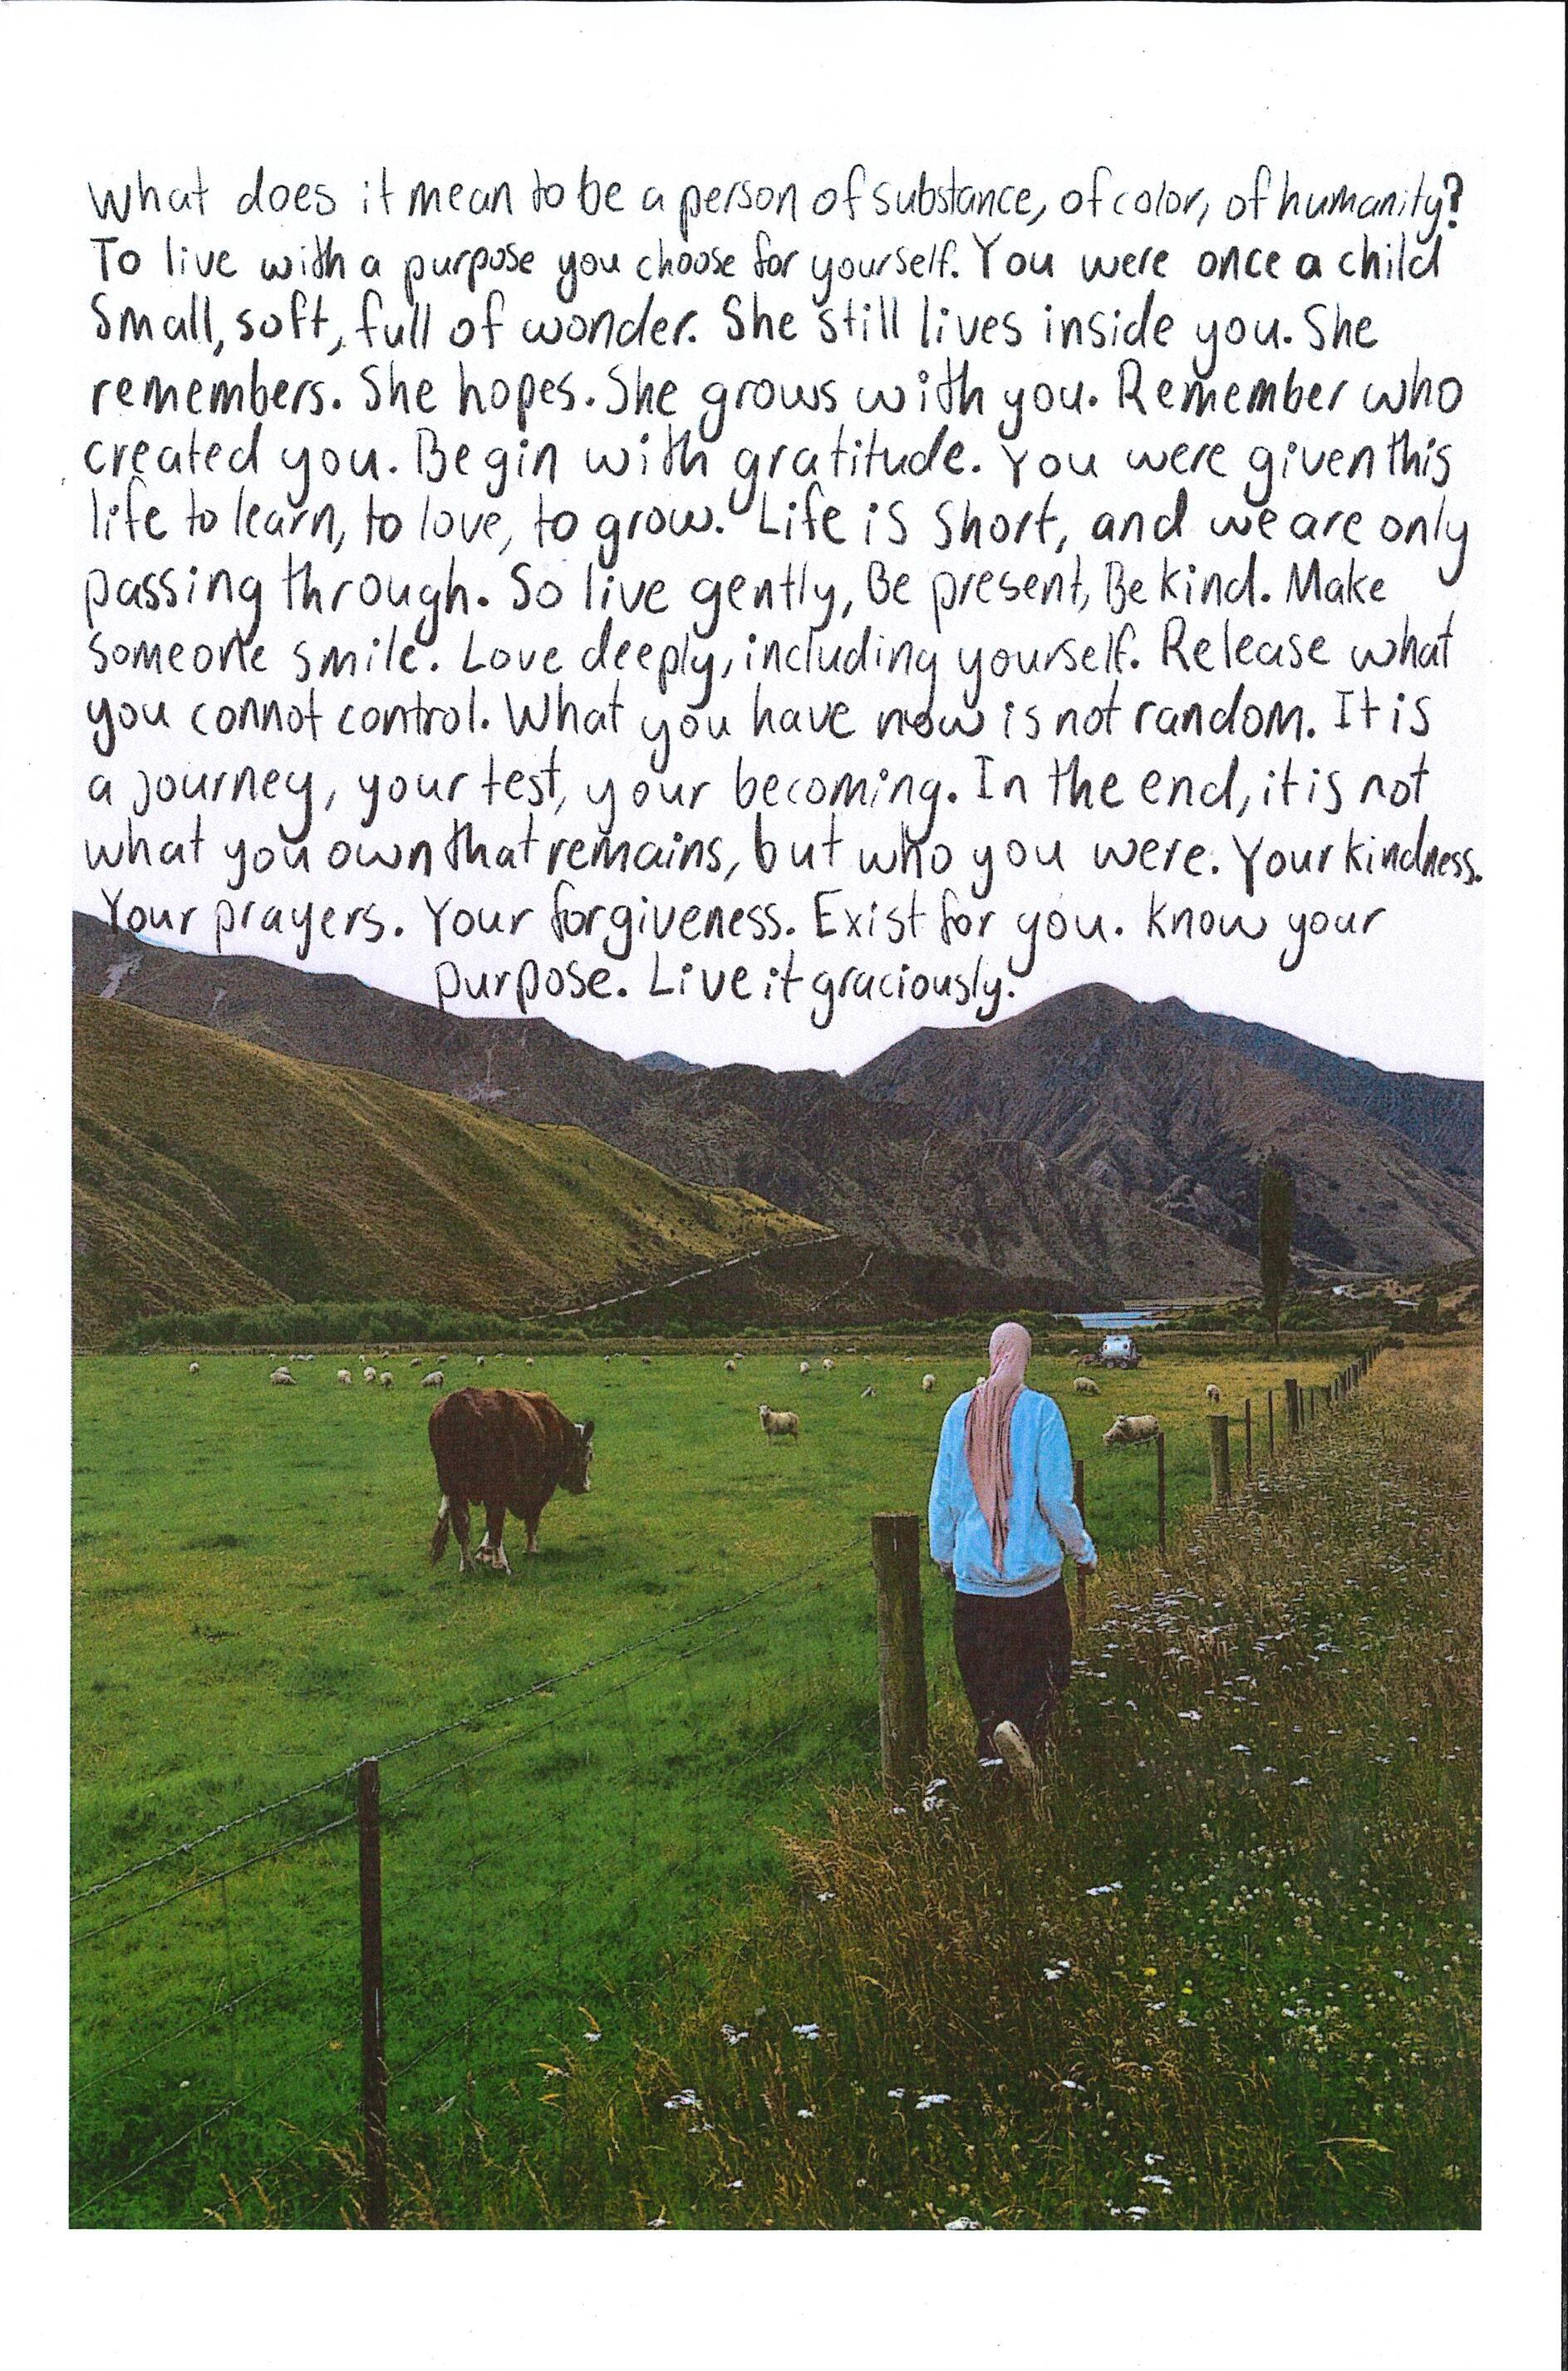 What does it mean to be a person of substance, of color, of humanity?
To live with a purpose you choose for yourself. You were once a child
Small, soft, full of wonder. She still lives inside you. She
remembers. She hopes. She grows with you. Remember who
created you. Begin with gratitude. You were given this
life to learn, to love, to grow. Life is Short, and we are only
passing through. So live gently, Be present, Be kind. Make
someone smile. Love deeply, including yourself. Release what
you connot control. What you have now is not random. It is
a journey, your test, your becoming. In the end, it is not
what you own that remains, but who you were. Your kindness.
Your prayers. Your forgiveness. Exist for you. Know your
purpose. Live it graciously.